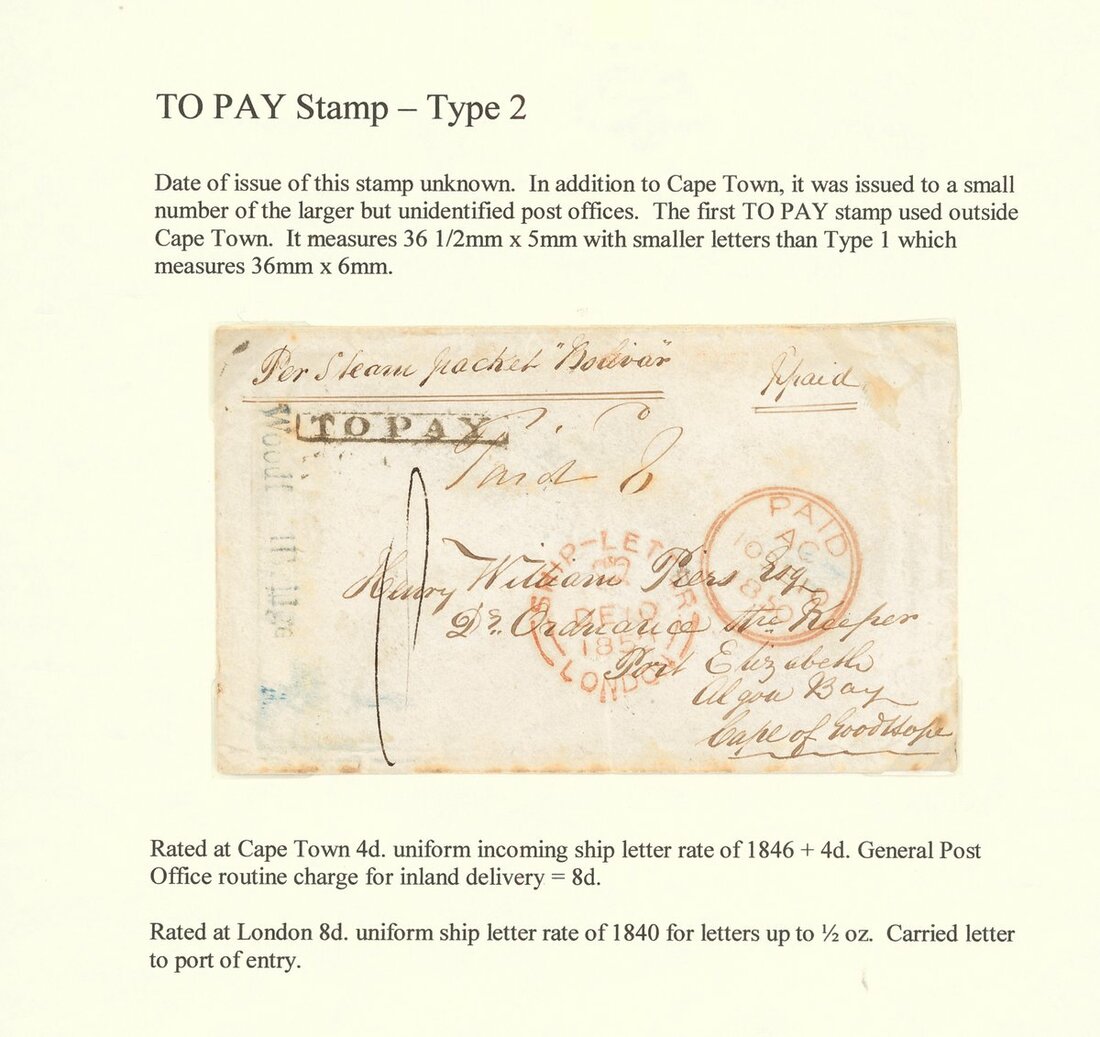 TO PAY Stamp – Type 2
Date of issue of this stamp unknown. In addition to Cape Town, it was issued to a small
number of the larger but unidentified post offices. The first TO PAY stamp used outside
Cape Town. It measures 36 1/2mm x 5mm with smaller letters than Type 1 which
measures 36mm x 6mm.
Per Steam packet "Bolivar"
Ppaid
TO PAY
Paid 8
PAID
SHIP-LETTER
Henry William Piers Esqr
Dy. Ordnance Stre Keeper
DE 10
1850
LONDON
Port Elizabeth
Algoa Bay
Cape of Good Hope
Rated at Cape Town 4d. uniform incoming ship letter rate of 1846 + 4d. General Post
Office routine charge for inland delivery = 8d.
Rated at London 8d. uniform ship letter rate of 1840 for letters up to ½ oz. Carried letter
to port of entry.